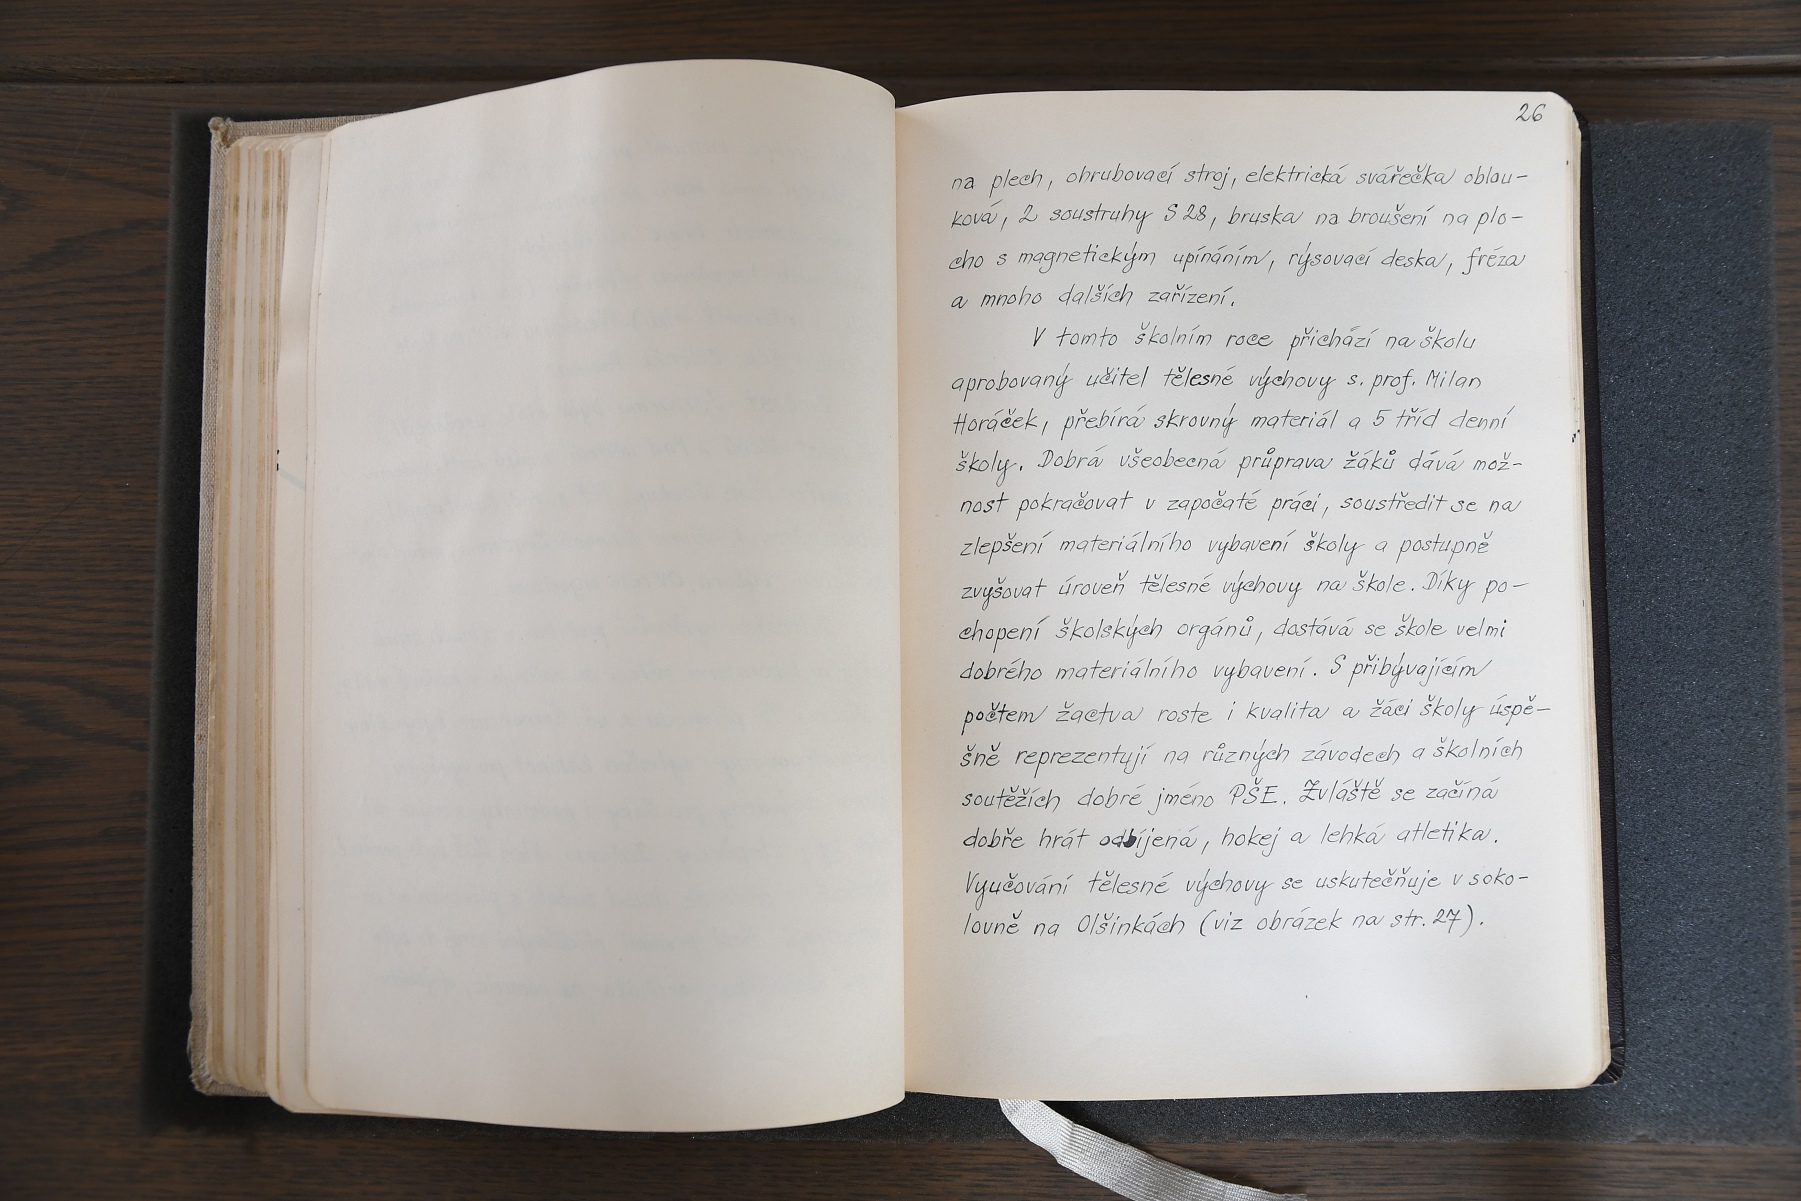 26
na plech, ohrubovací stroj, elektrická svářečka oblou-
ková, 2 soustruhy S 28, bruska na broušení na plo-
cho s magnetickým upínáním, rýsovací deska, fréza
a mnoho dalších zařízení.
V tomto školním roce přichází na školu
aprobovaný učitel tělesné výchovy s. prof. Milan
Horáček, přebírá skrovný materiál a 5 tříd denní
školy. Dobrá všeobecná průprava žáků dává mož-
nost pokračovat v započaté práci, soustředit se na
zlepšení materiálního vybavení školy a postupně
zvyšovat úroveň tělesné výchovy na škole. Díky po-
chopení školských orgánů, dostává se škole velmi
dobrého materiálního vybavení. S přibývajícím
počtem žactva roste i kvalita a žáci školy úspě-
šně reprezentují na různých závodech a školních
soutěžích dobré jméno PŠE. Zvláště se začíná
dobře hrát odbíjená, hokej a lehká atletika.
Vyučování tělesné výchovy se uskutečňuje v soko-
lovně na Olšinkách (viz obrázek na str. 27).